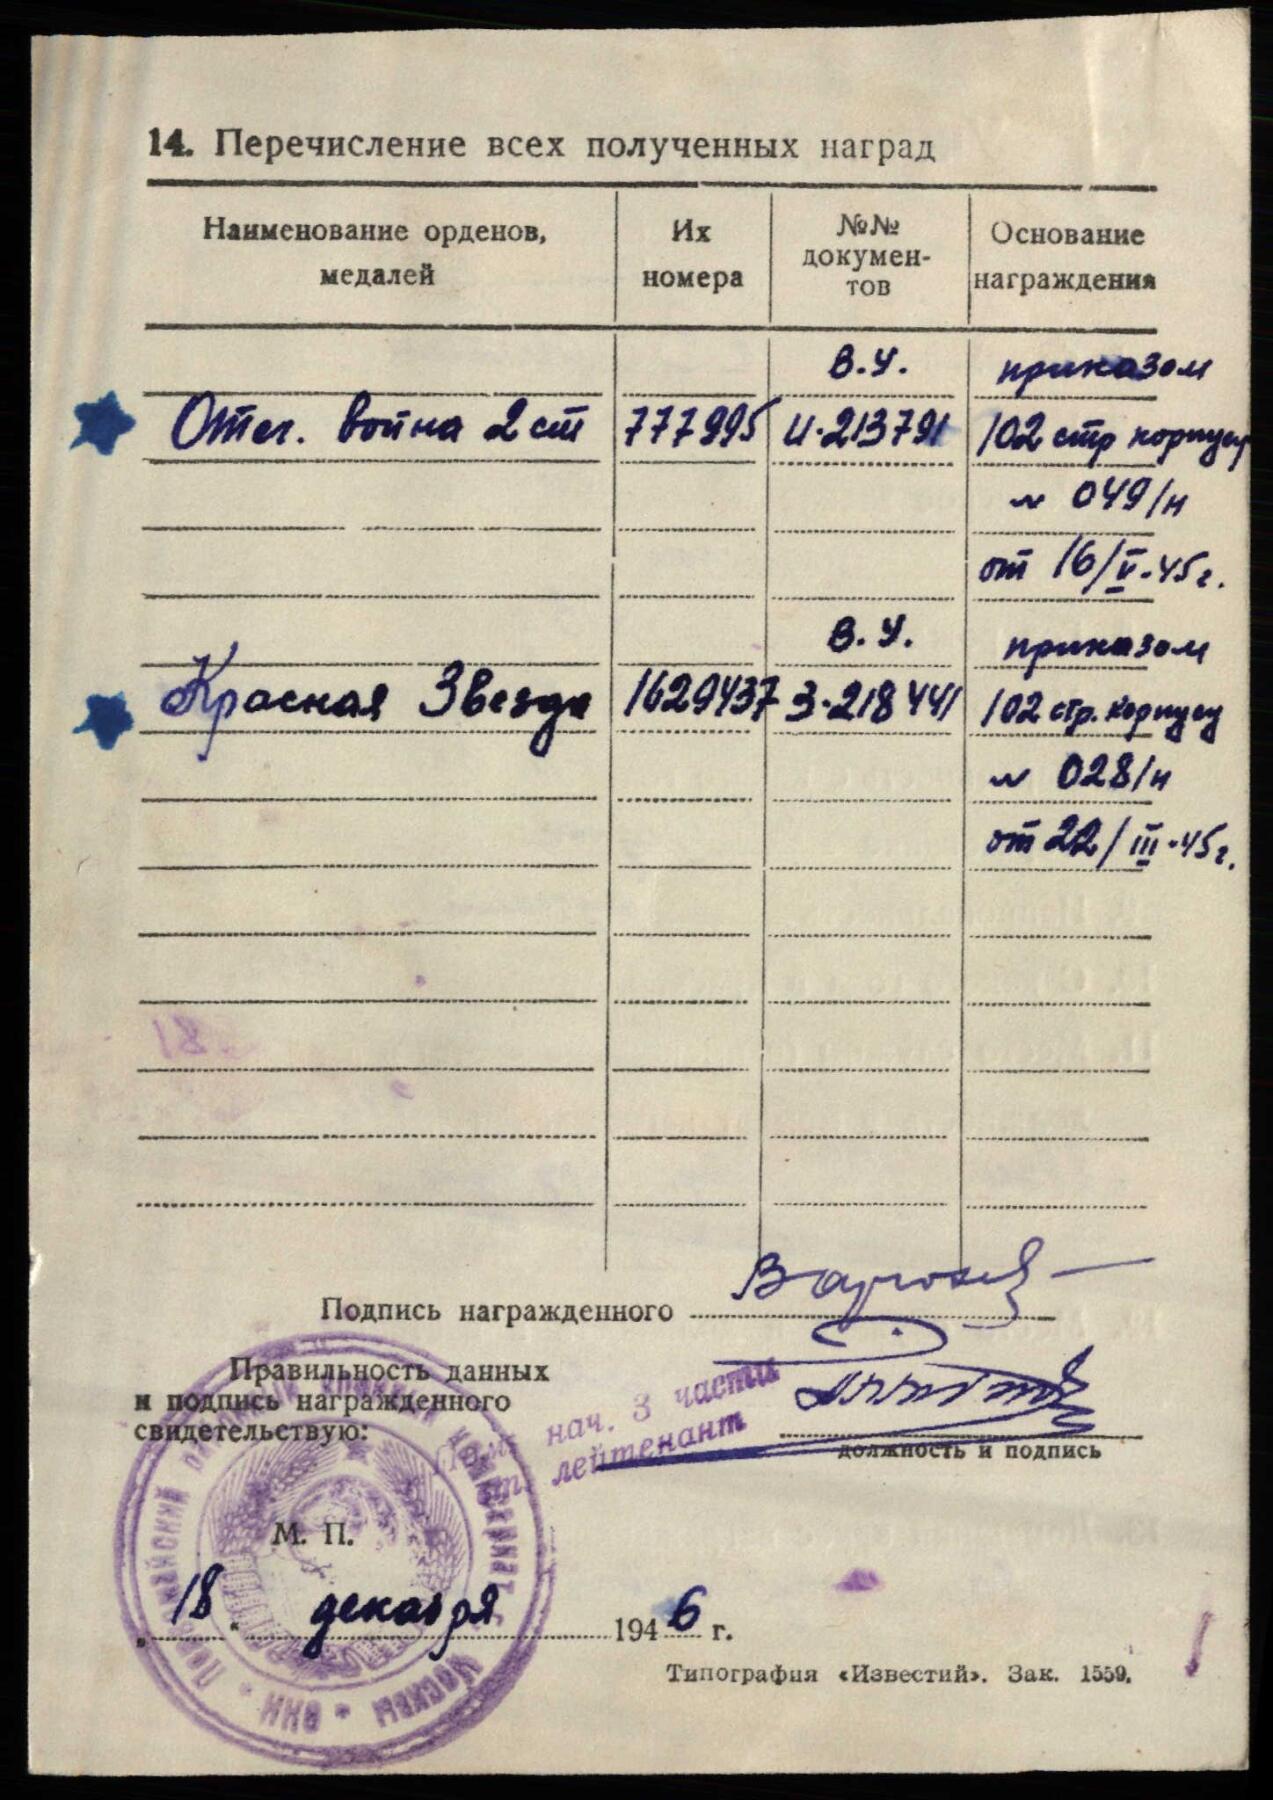 14. Перечисление всех полученных наград
Наименование орденов, медалей
Их номера
№№ докумен-
тов
Основание награждения
В.У. приказом
Отеч. война 2 ст 777995 И-213791 102 стр корпусу
№ 049/н
от 16/V-45г.
В.У. приказом
Красная Звезда 1629437 З-218441 102 стр. корпусу
№ 028/н
от 22/III-45г.
Подпись награжденного
Правильность данных
и подпись награжденного
свидетельствую:
нач. 3 части
лейтенант
должность и подпись
М. П.
„ 18 “ декабря 1946 г.
Типография «Известий». Зак. 1559.